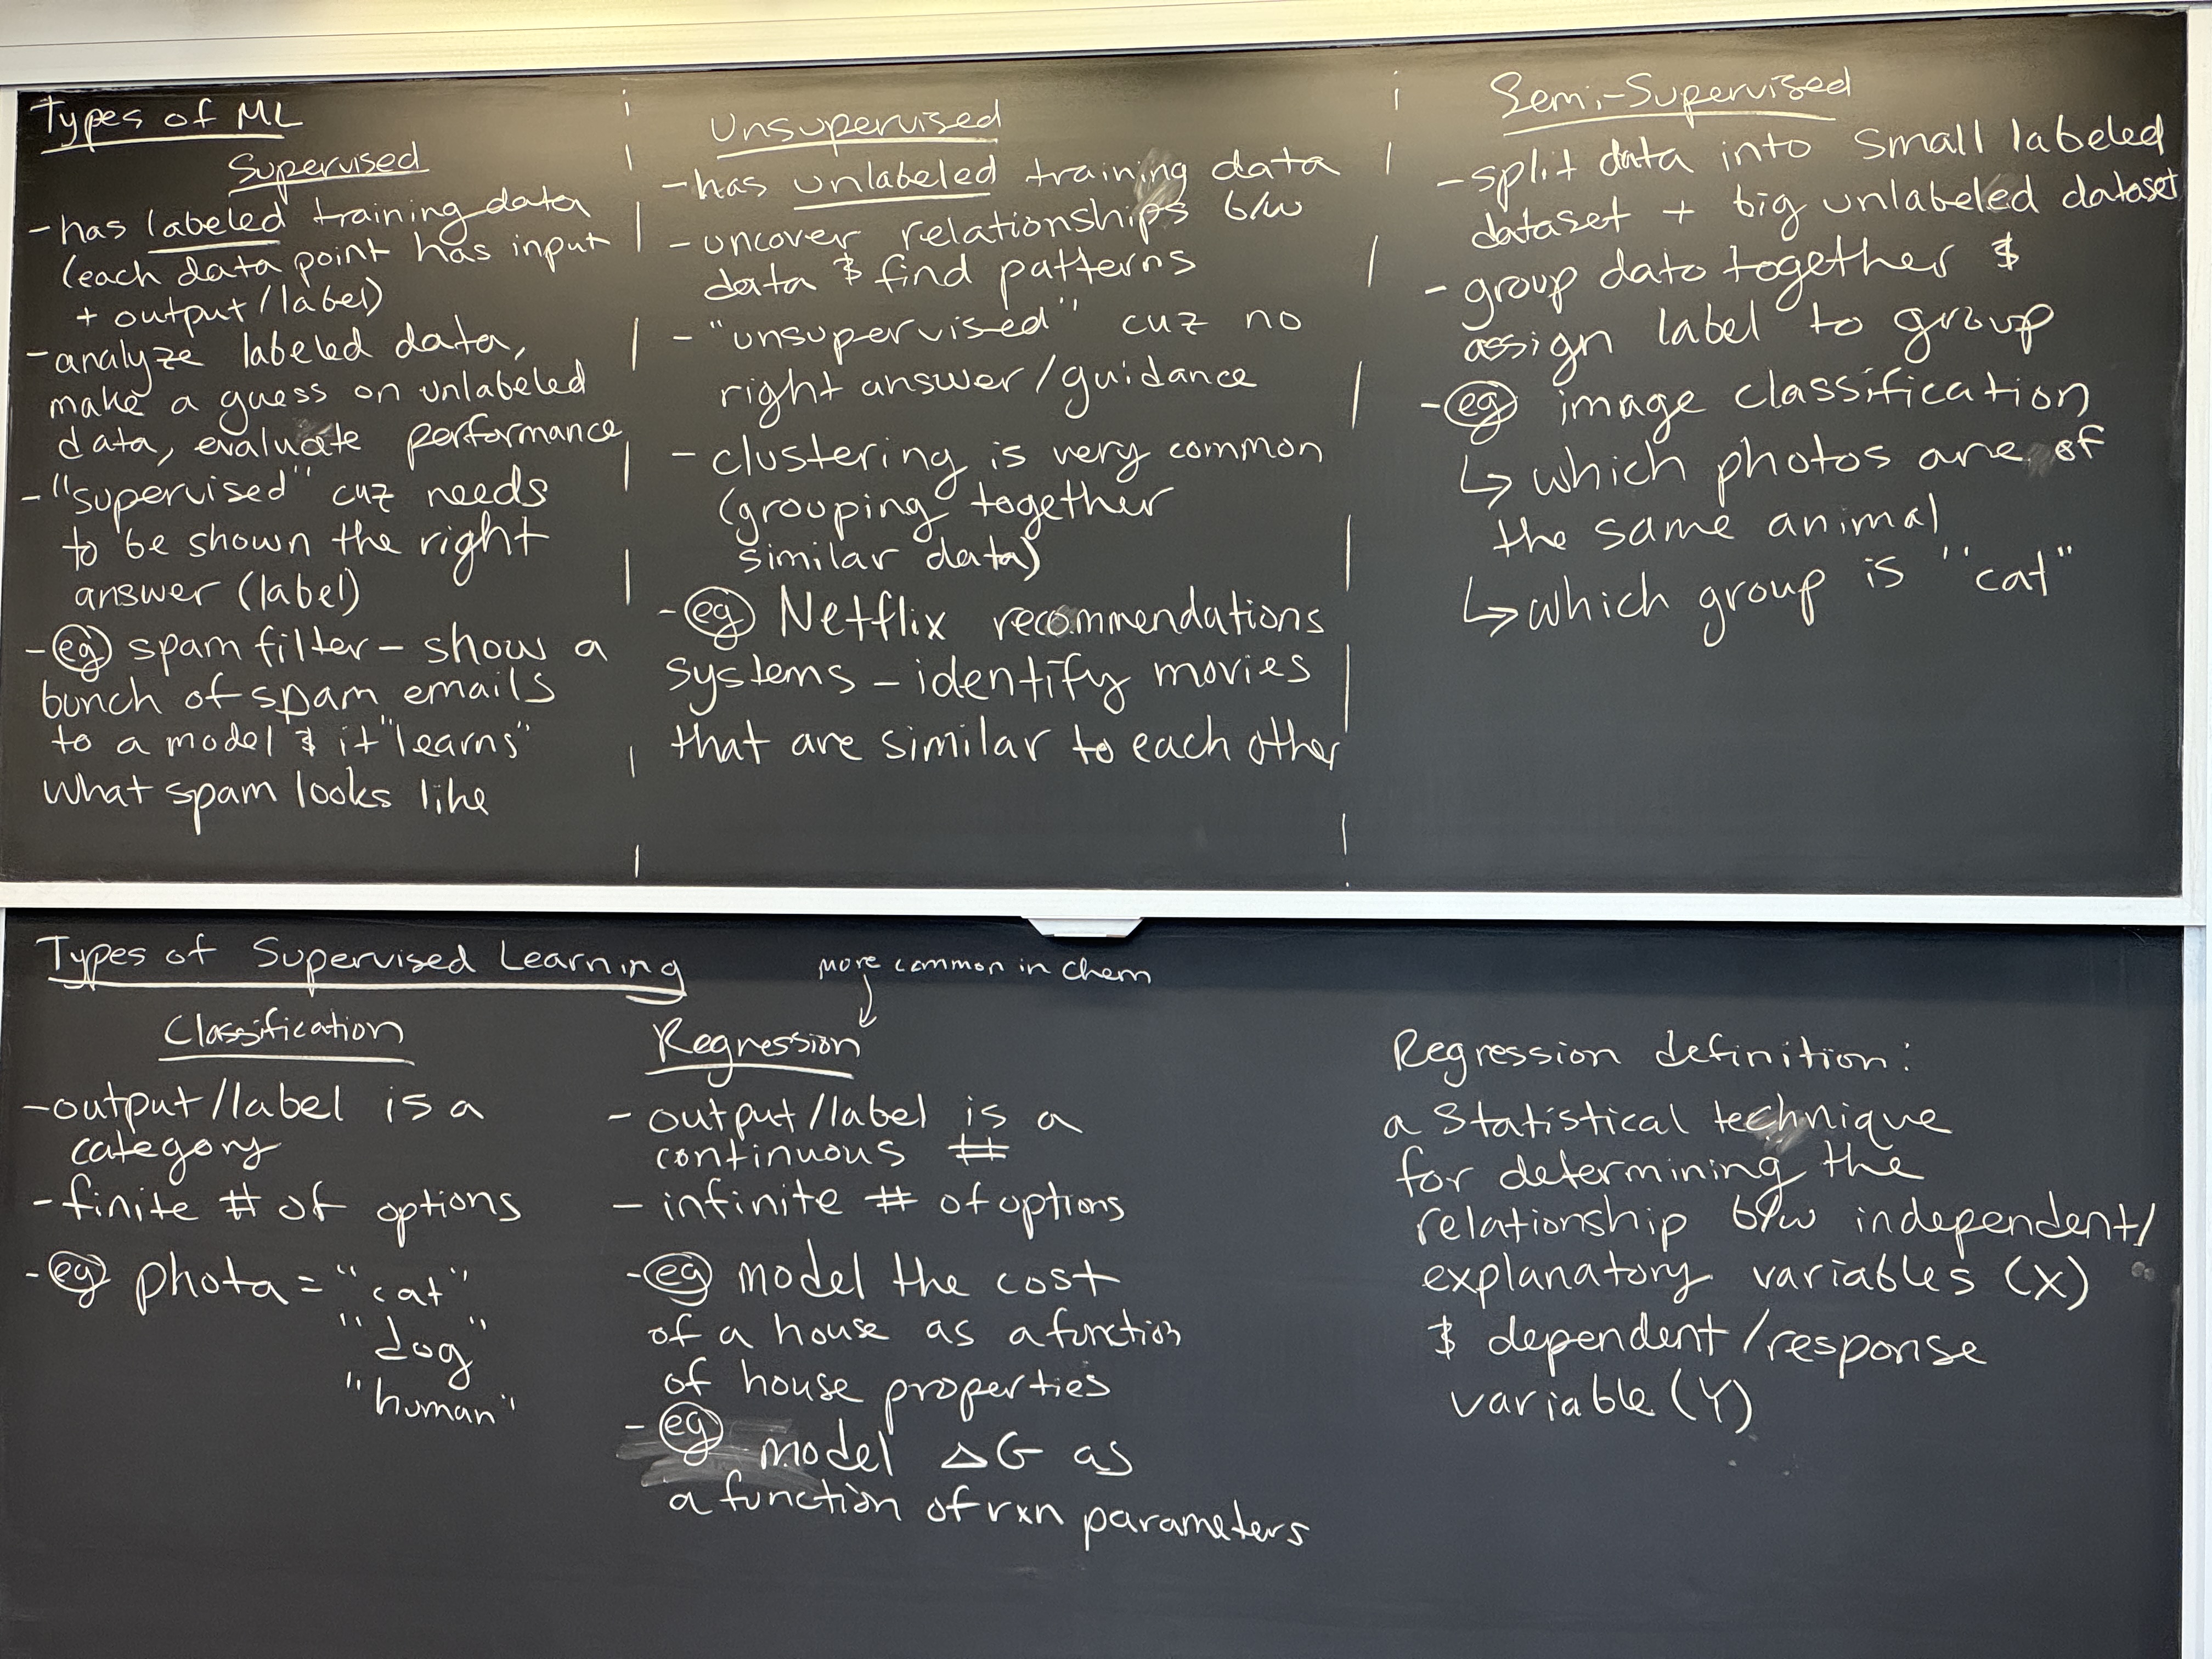 Types of ML
Supervised
- has labeled training data
(each data point has input
+ output/label)
- analyze labeled data,
make a guess on unlabeled
data, evaluate performance
- "supervised" cuz needs
to be shown the right
answer (label)
- eg spam filter - show a
bunch of spam emails
to a model & it "learns"
what spam looks like
Unsupervised
- has unlabeled training data
- uncover relationships b/w
data & find patterns
- "unsupervised" cuz no
right answer/guidance
- clustering is very common
(grouping together
similar data)
- eg Netflix recommendations
systems - identify movies
that are similar to each other
Semi-Supervised
- split data into small labeled
dataset + big unlabeled dataset
- group data together &
assign label to group
- eg image classification
↳ which photos are of
the same animal
↳ which group is "cat"
Types of Supervised Learning
Classification
- output/label is a
category
- finite # of options
- eg phota = "cat"
"dog"
"human"
more common in chem
↓
Regression
- output/label is a
continuous #
- infinite # of options
- eg model the cost
of a house as a function
of house properties
- eg model ΔG as
a function of rxn parameters
Regression definition:
a statistical technique
for determining the
relationship b/w independent/
explanatory variables (X)
& dependent/response
variable (Y)